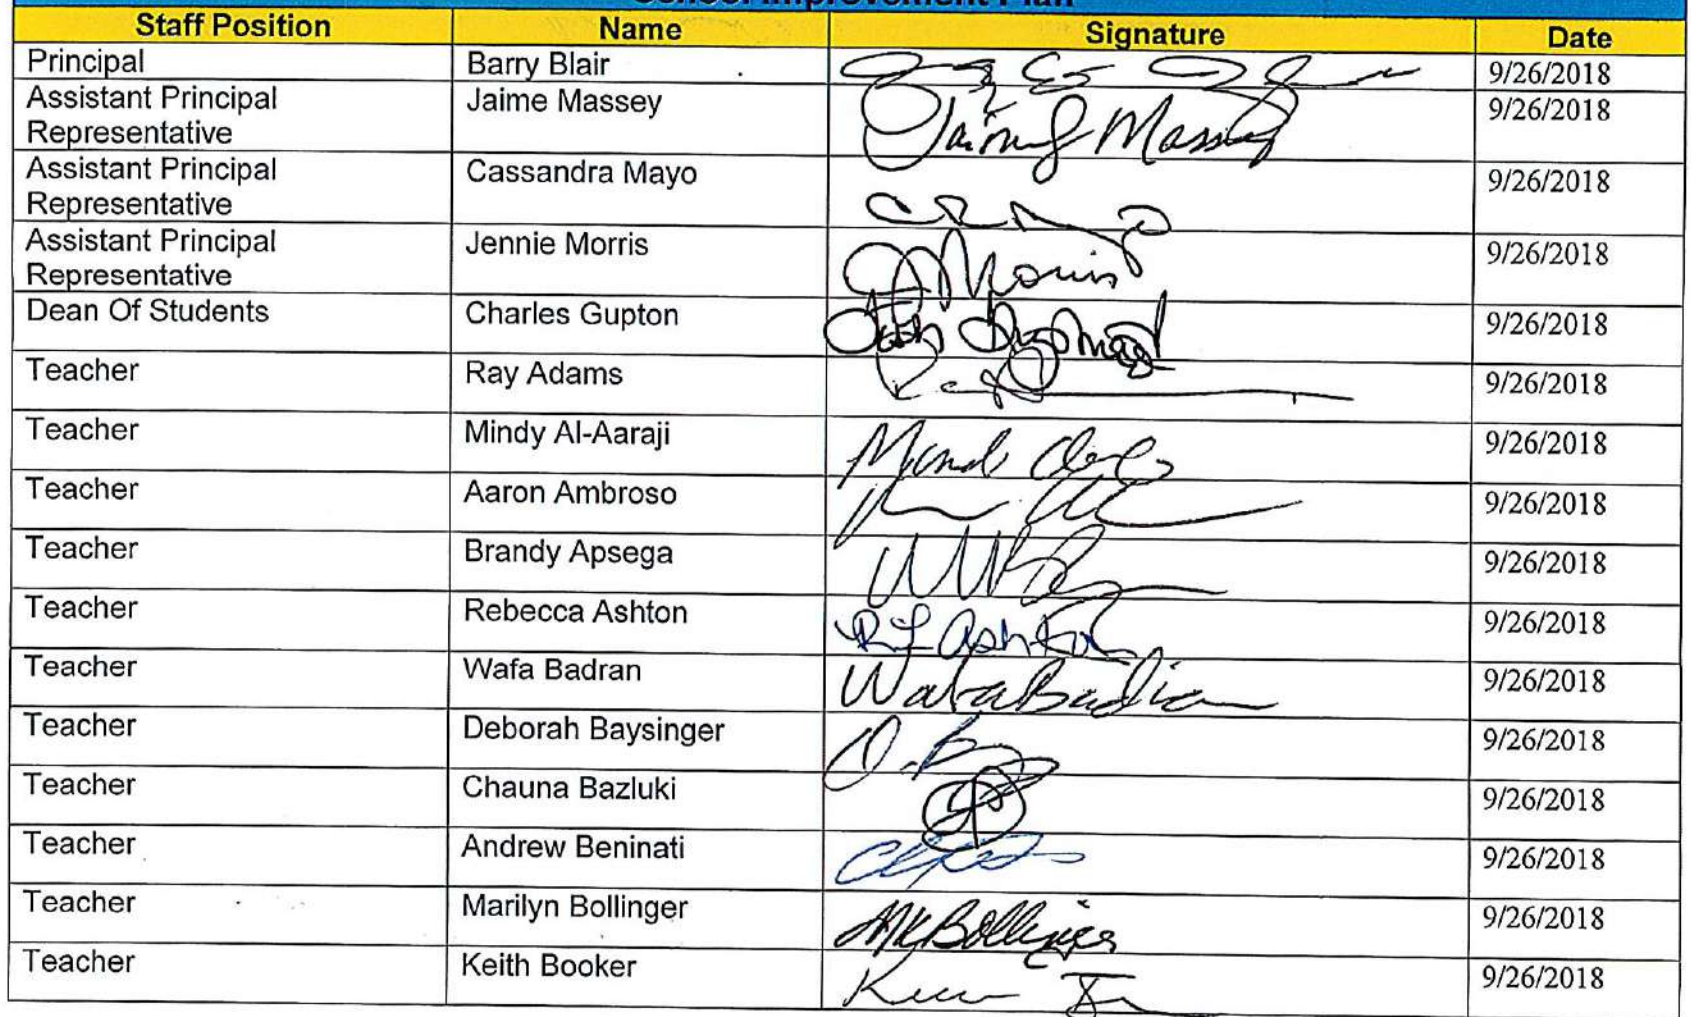 School Improvement Plan
Staff Position Name Signature Date
Principal Barry Blair 9/26/2018
Assistant Principal Jaime Massey Jaime Massey 9/26/2018
Representative
Assistant Principal Cassandra Mayo 9/26/2018
Representative
Assistant Principal Jennie Morris J Morris 9/26/2018
Representative
Dean Of Students Charles Gupton 9/26/2018
Teacher Ray Adams 9/26/2018
Teacher Mindy Al-Aaraji 9/26/2018
Teacher Aaron Ambroso 9/26/2018
Teacher Brandy Apsega 9/26/2018
Teacher Rebecca Ashton RL Ashton 9/26/2018
Teacher Wafa Badran Wafa Badran 9/26/2018
Teacher Deborah Baysinger 9/26/2018
Teacher Chauna Bazluki 9/26/2018
Teacher Andrew Beninati 9/26/2018
Teacher Marilyn Bollinger MK Bollinger 9/26/2018
Teacher Keith Booker 9/26/2018